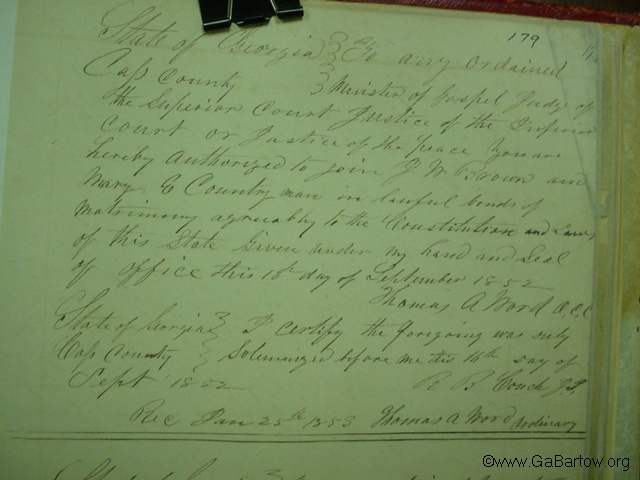 179
State of Georgia } To any ordained
Cass County } Minister of Gospel Judge of
the Superior Court Justice of the Inferior
Court or Justice of the peace you are
hereby Authorized to join J W Brown and
Mary E Countryman in lawful bonds of
matrimony agreeably to the Constitution and Laws
of this State Given under my hand and Seal
of office this 15th day of September 1852
Thomas A Word O.C.C
State of Georgia } I certify the foregoing was duly
Cass County } Solemnized before me this 16th day of
Sept 1852 R B Couch J.P.
Rec Jan 25th 1853 Thomas A Word Ordinary
©www.GaBartow.org